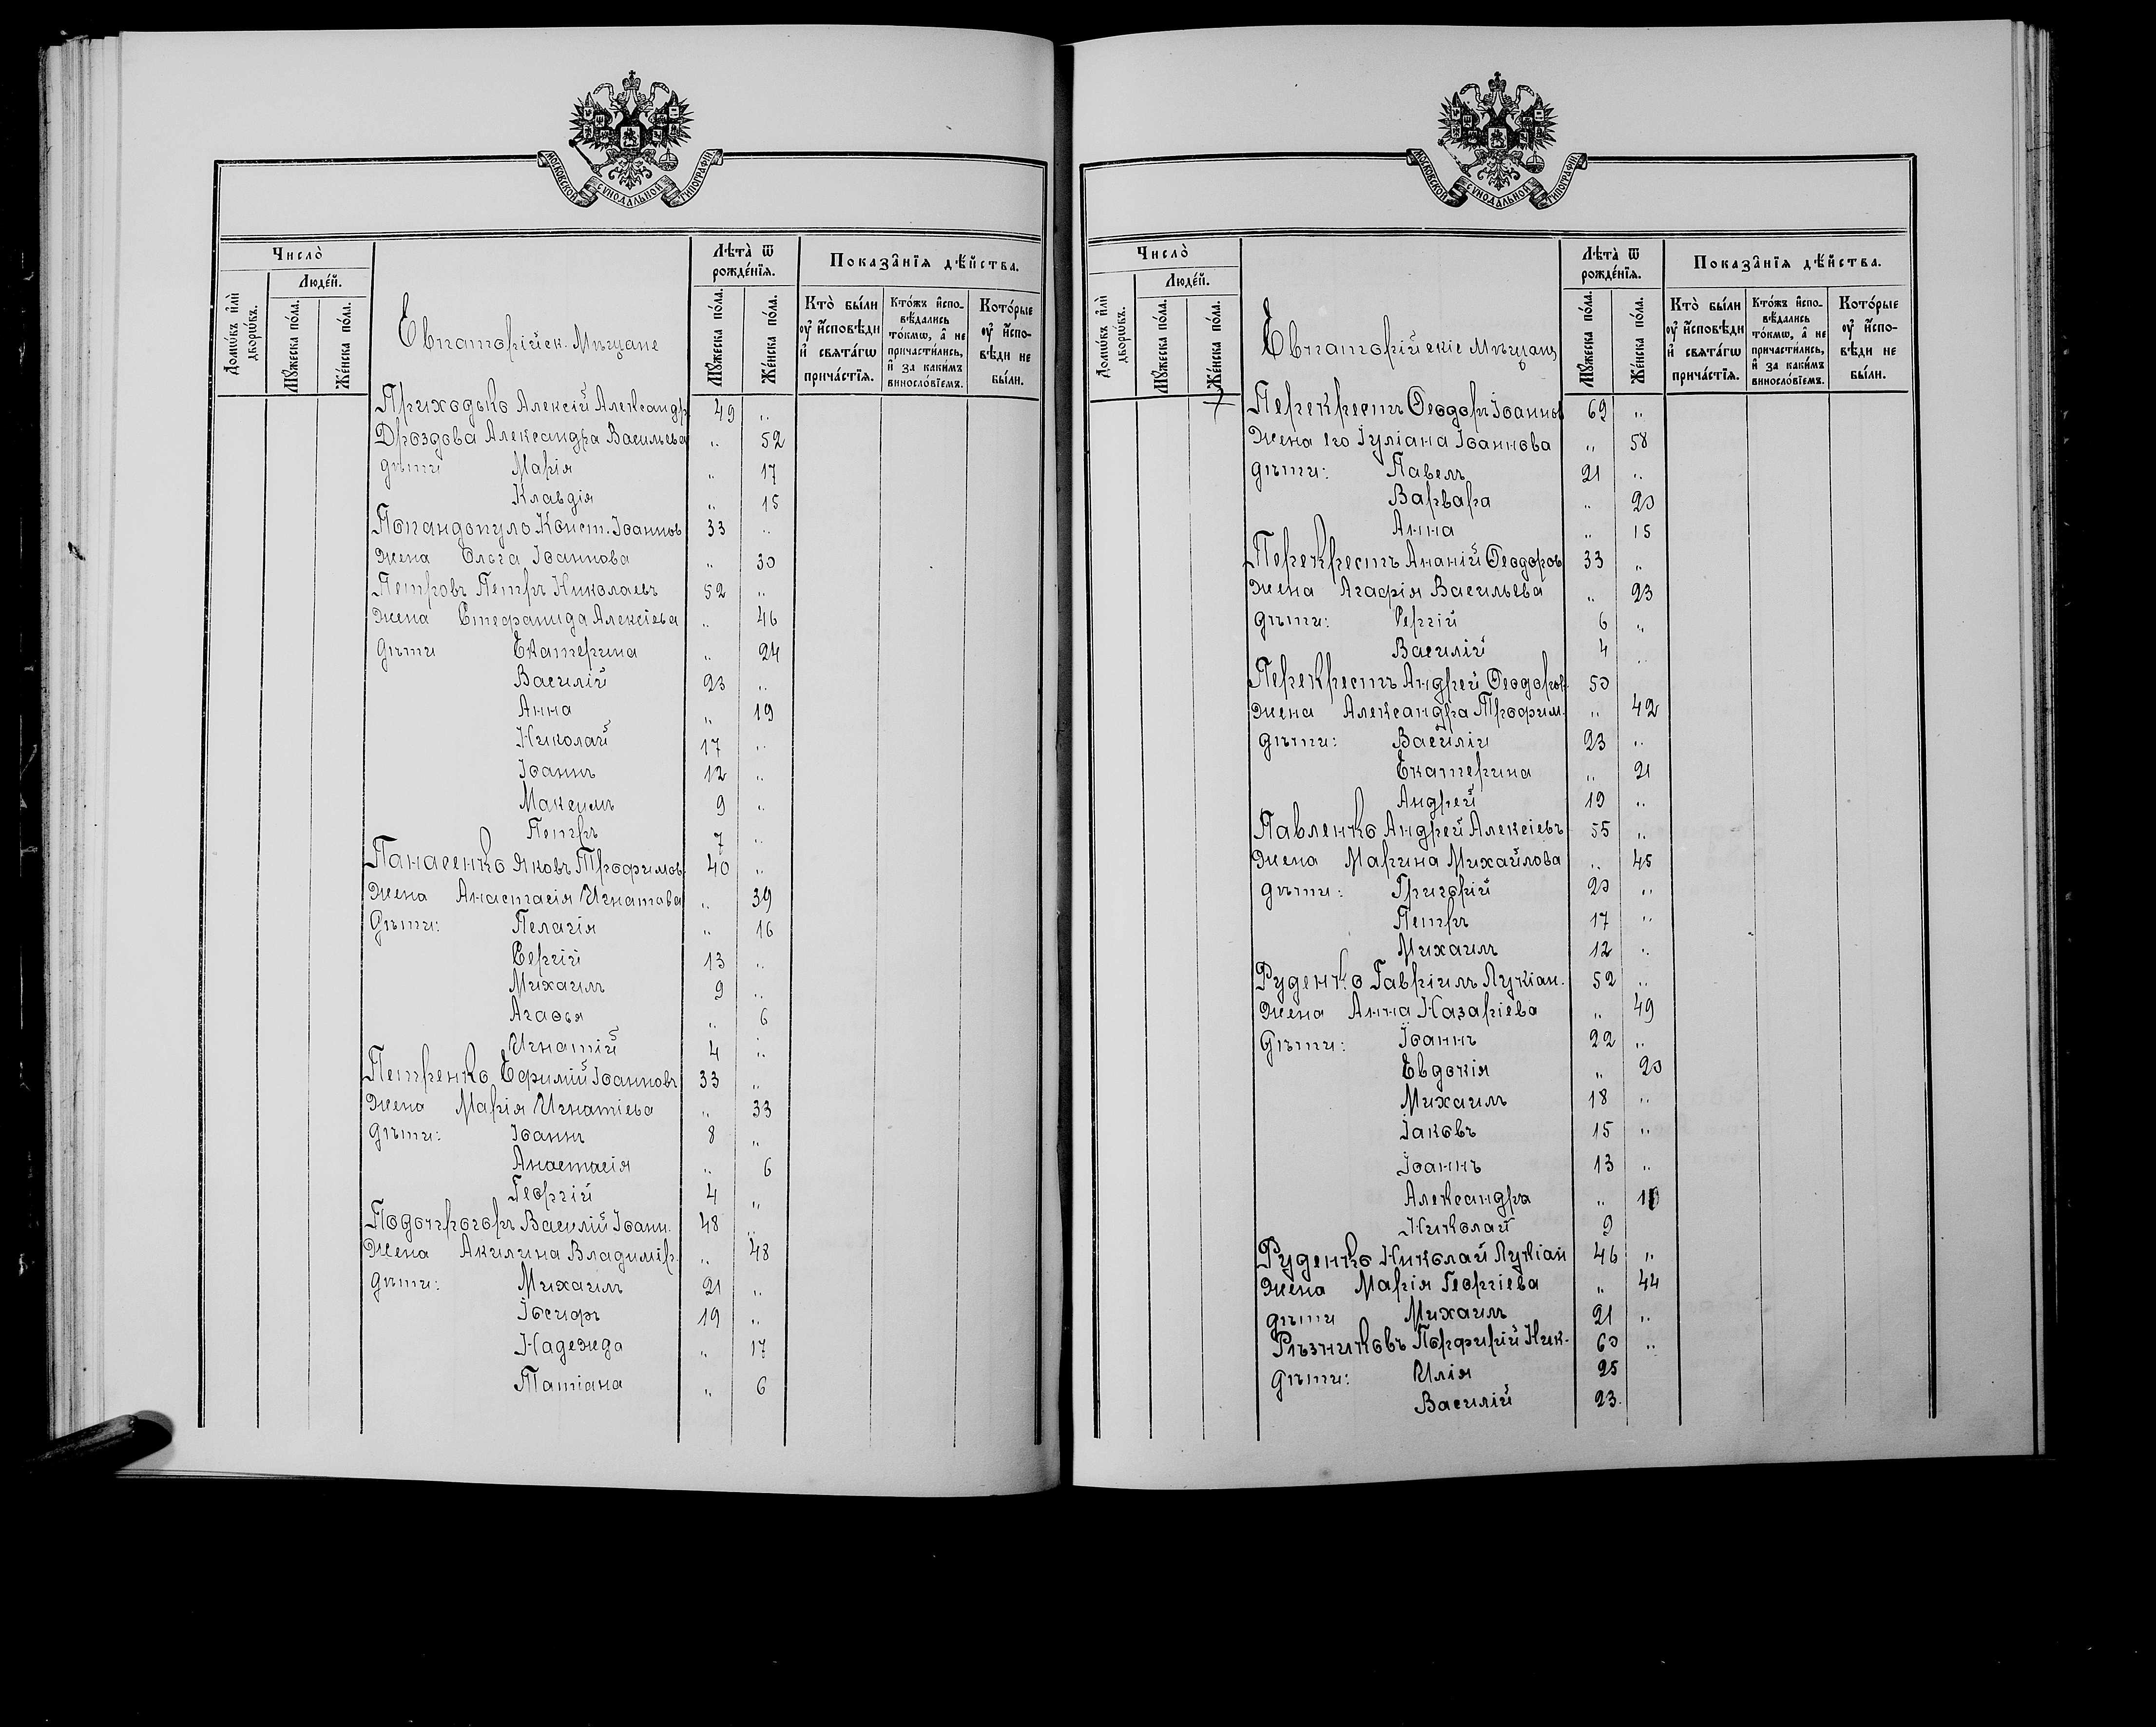 МОСКОВСКОЙ СѴНОДАЛЬНОЙ ТИПОГРАФІИ
Число̀
Людéй.
Домѡ́въ и҆лѝ дворѡ́въ.
Мꙋ́жеска по́ла.
Же́нска по́ла.
Лѣта̀ ѿ рожде́нїѧ.
Мꙋ́жеска по́ла.
Же́нска по́ла.
Показа̑нїѧ дѣ́йства.
Кто̀ бы́ли оу҆ и҆сповѣди и҆ свѧта́гѡ прича́стїѧ.
Кто́жъ и҆спо-вѣдались то́кмѡ, а҆ не причасти́лись, и҆ за каки́мъ винослóвїемъ.
Кото́рые оу҆ и҆спо-вѣди не бы́ли.
Евпаторійск. Мѣщане
Приходько Алексій Александр 49 "
Дроздова Александра Васильева " 52
дѣти Марія " 17
Клавдія " 15
Попандопуло Конст. Іоаннов 33 "
Жена Ольга Іоаннова " 30
Петровъ Петръ Николаевъ 52 "
Жена Стефанида Алексіева " 46
Дѣти Екатерина " 24
Василій 23 "
Анна " 19
Николай 17 "
Іоаннъ 12 "
Максимъ 9 "
Петръ 7 "
Панасенко Яковъ Трофимов. 40 "
Жена Анастасія Игнатова " 39
Дѣти: Пелагія " 16
Сергій 13 "
Михаилъ 9 "
Агаѳья " 6
Игнатій 4 "
Петренко Ефимій Іоанновъ 33 "
Жена Марія Игнатіева " 33
дѣти: Іоаннъ 8 "
Анастасія " 6
Георгій 4 "
Подопригоръ Василій Іоанн. 48 "
Жена Акилина Владимір. " 48
дѣти: Михаилъ 21 "
Іосифъ 19 "
Надежда " 17
Татіана " 6
МОСКОВСКОЙ СѴНОДАЛЬНОЙ ТИПОГРАФІИ
Число̀
Людéй.
Домѡ́въ и҆лѝ дворѡ́въ.
Мꙋ́жеска по́ла.
Же́нска по́ла.
Лѣта̀ ѿ рожде́нїѧ.
Мꙋ́жеска по́ла.
Же́нска по́ла.
Показа̑нїѧ дѣ́йства.
Кто̀ бы́ли оу҆ и҆сповѣди и҆ свѧта́гѡ прича́стїѧ.
Кто́жъ и҆спо-вѣдались то́кмѡ, а҆ не причасти́лись, и҆ за каки́мъ винослóвїемъ.
Кото́рые оу҆ и҆спо-вѣди не бы́ли.
Евпаторійскіе Мѣщане
Перекрестъ Ѳеодоръ Іоаннов 69 "
Жена его Іуліана Іоаннова " 58
дѣти: Павелъ 21 "
Варвара " 20
Анна " 15
Перекрестъ Ананій Ѳеодоров 33 "
Жена Агафія Васильева " 23
дѣти: Сергій 6 "
Василій 4 "
Перекрестъ Андрей Ѳеодоров. 50
Жена Александра Трофим. " 42
дѣти: Василій 23 "
Екатерина " 21
Андрей 19 "
Павленко Андрей Алексіевъ 55 "
Жена Марина Михайлова " 45
дѣти: Григорій 20 "
Петръ 17 "
Михаилъ 12 "
Руденко Гавріилъ Лукіан. 52 "
Жена Анна Назаріева " 49
Дѣти: Іоаннъ 22 "
Евдокія " 20
Михаилъ 18 "
Іаковъ 15 "
Іоаннъ 13 "
Александра " 10
Николай 9
Руденко Николай Лукіан 46 "
Жена Марія Георгіева " 44
дѣти Михаилъ 21 "
Рѣзниковъ Порфирій Ник. 60 "
Дѣти: Илія 25
Василій 23.